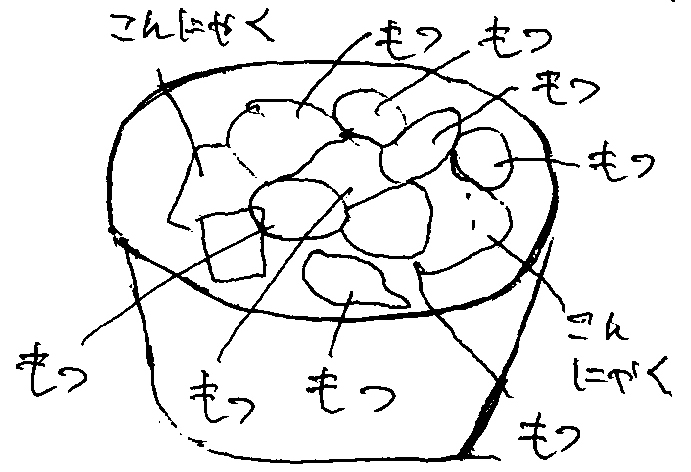 こんにゃく
もつ
もつ
もつ
もつ
こん
にゃく
もつ
もつ
もつ
もつ